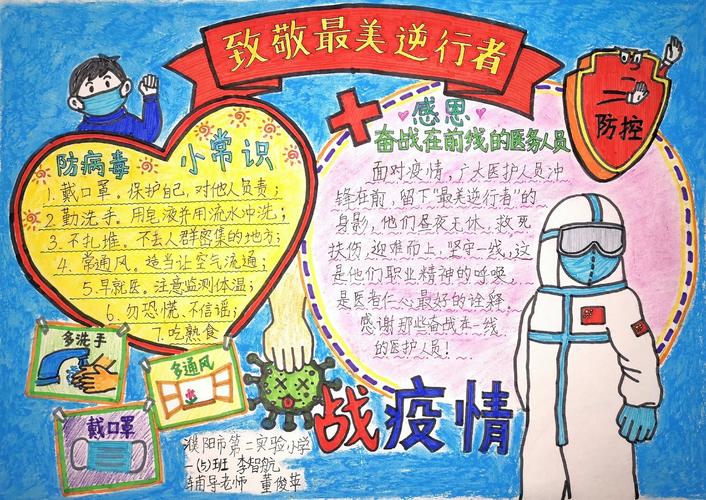 致敬最美逆行者
防病毒 小常识
1.戴口罩。保护自己,对他人负责;
2.勤洗手。用皂液并用流水冲洗;
3.不扎堆。不去人群密集的地方;
4.常通风。适当让空气流通;
5.早就医。注意监测体温;
6.勿恐慌、不信谣;
7.吃熟食
感恩
奋战在前线的医务人员
面对疫情,广大医护人员冲
锋在前,留下“最美逆行者”的
身影,他们昼夜无休,救死
扶伤,迎难而上,坚守一线,这
是他们职业精神的呼唤,
是医者仁心最好的诠释。
感谢那些奋战在一线
的医护人员!
防控
多洗手
多通风
戴口罩
战疫情
濮阳市第二实验小学
一(5)班 李智航
辅导老师 董俊萍